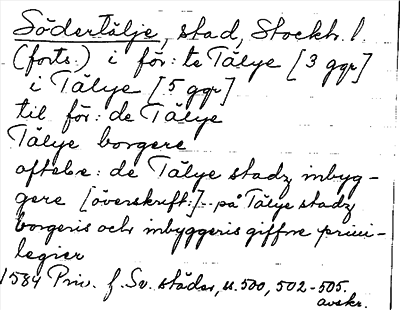 Södertälje, stad, Stockh. l.
(forts.) i för: te Tälye [3 ggr]
i Tälye [5 ggr]
til för: de Tälye
Tälye borgere
oftebe: de Tälye stadz inbyg-
gere [överskrift:] .. på Tälye stadz
borgeris och inbyggeris giffne privi-
legier
1584 Priv. f. Sv. städer, u. 500, 502-505.
avskr.